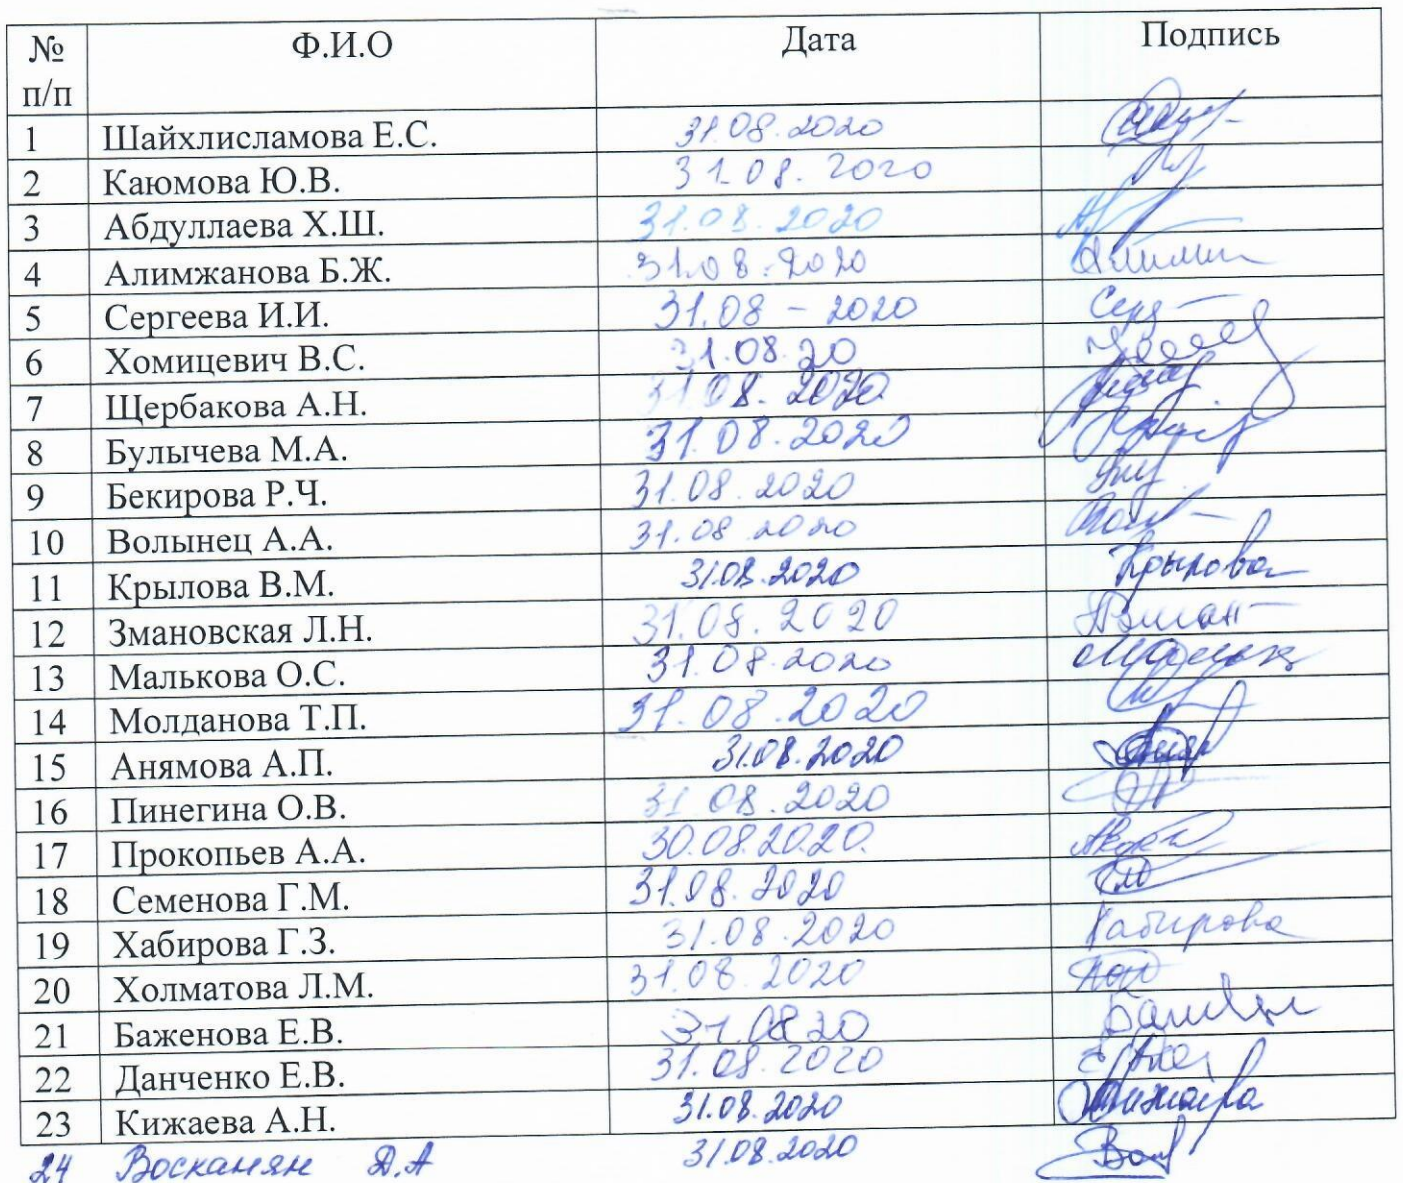 № п/п Ф.И.О Дата Подпись
1 Шайхлисламова Е.С. 31.08.2020
2 Каюмова Ю.В. 31.08.2020
3 Абдуллаева Х.Ш. 31.08.2020
4 Алимжанова Б.Ж. 31.08.2020
5 Сергеева И.И. 31.08 - 2020
6 Хомицевич В.С. 31.08.20
7 Щербакова А.Н. 31.08.2020
8 Булычева М.А. 31.08.2020
9 Бекирова Р.Ч. 31.08.2020
10 Волынец А.А. 31.08.2020
11 Крылова В.М. 31.08.2020 Крылова
12 Змановская Л.Н. 31.08.2020
13 Малькова О.С. 31.08.2020
14 Молданова Т.П. 31.08.2020
15 Анямова А.П. 31.08.2020
16 Пинегина О.В. 31 08.2020
17 Прокопьев А.А. 30.08.2020.
18 Семенова Г.М. 31.08.2020
19 Хабирова Г.З. 31.08.2020 Хабирова
20 Холматова Л.М. 31.08.2020
21 Баженова Е.В. 31.08.20
22 Данченко Е.В. 31.08.2020
23 Кижаева А.Н. 31.08.2020 Кижаева
24 Восканян Д.А 31.08.2020